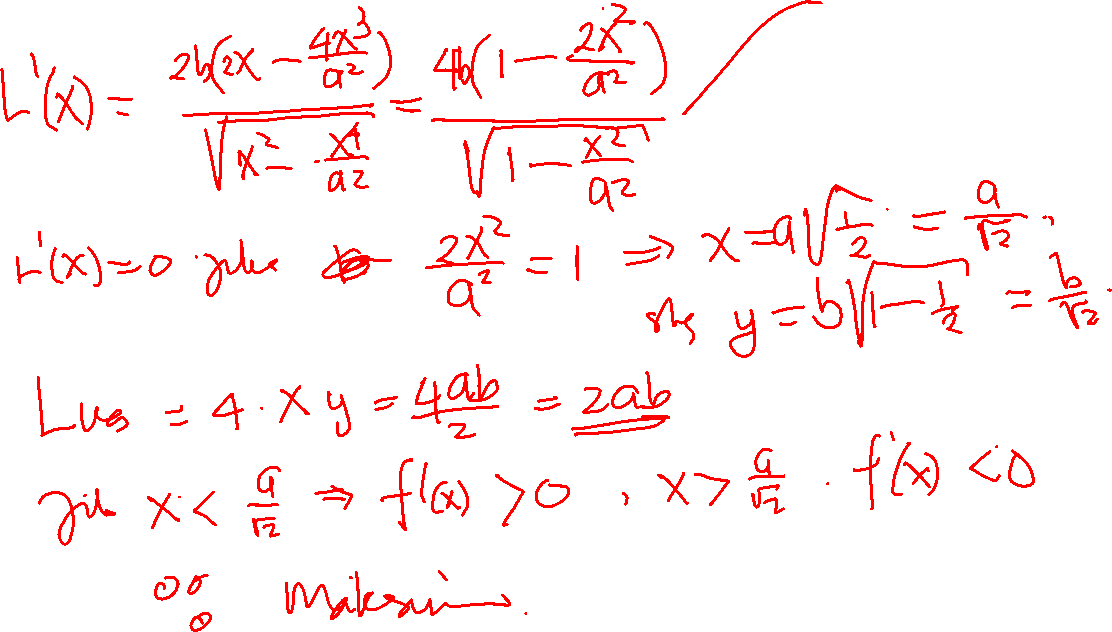 L'(x) = 2b(2x - 4x³/a²) / √(x² - x⁴/a²) = 4b(1 - 2x²/a²) / √(1 - x²/a²)
L'(x) = 0 jika 2x²/a² = 1 ⇒ x = a√(1/2) = a/√2,
shg y = b√(1 - 1/2) = b/√2.
Luas = 4 · x y = 4ab/2 = 2ab
Jika x < a/√2 ⇒ f'(x) > 0, x > a/√2. f'(x) < 0
∴ Maksimum.